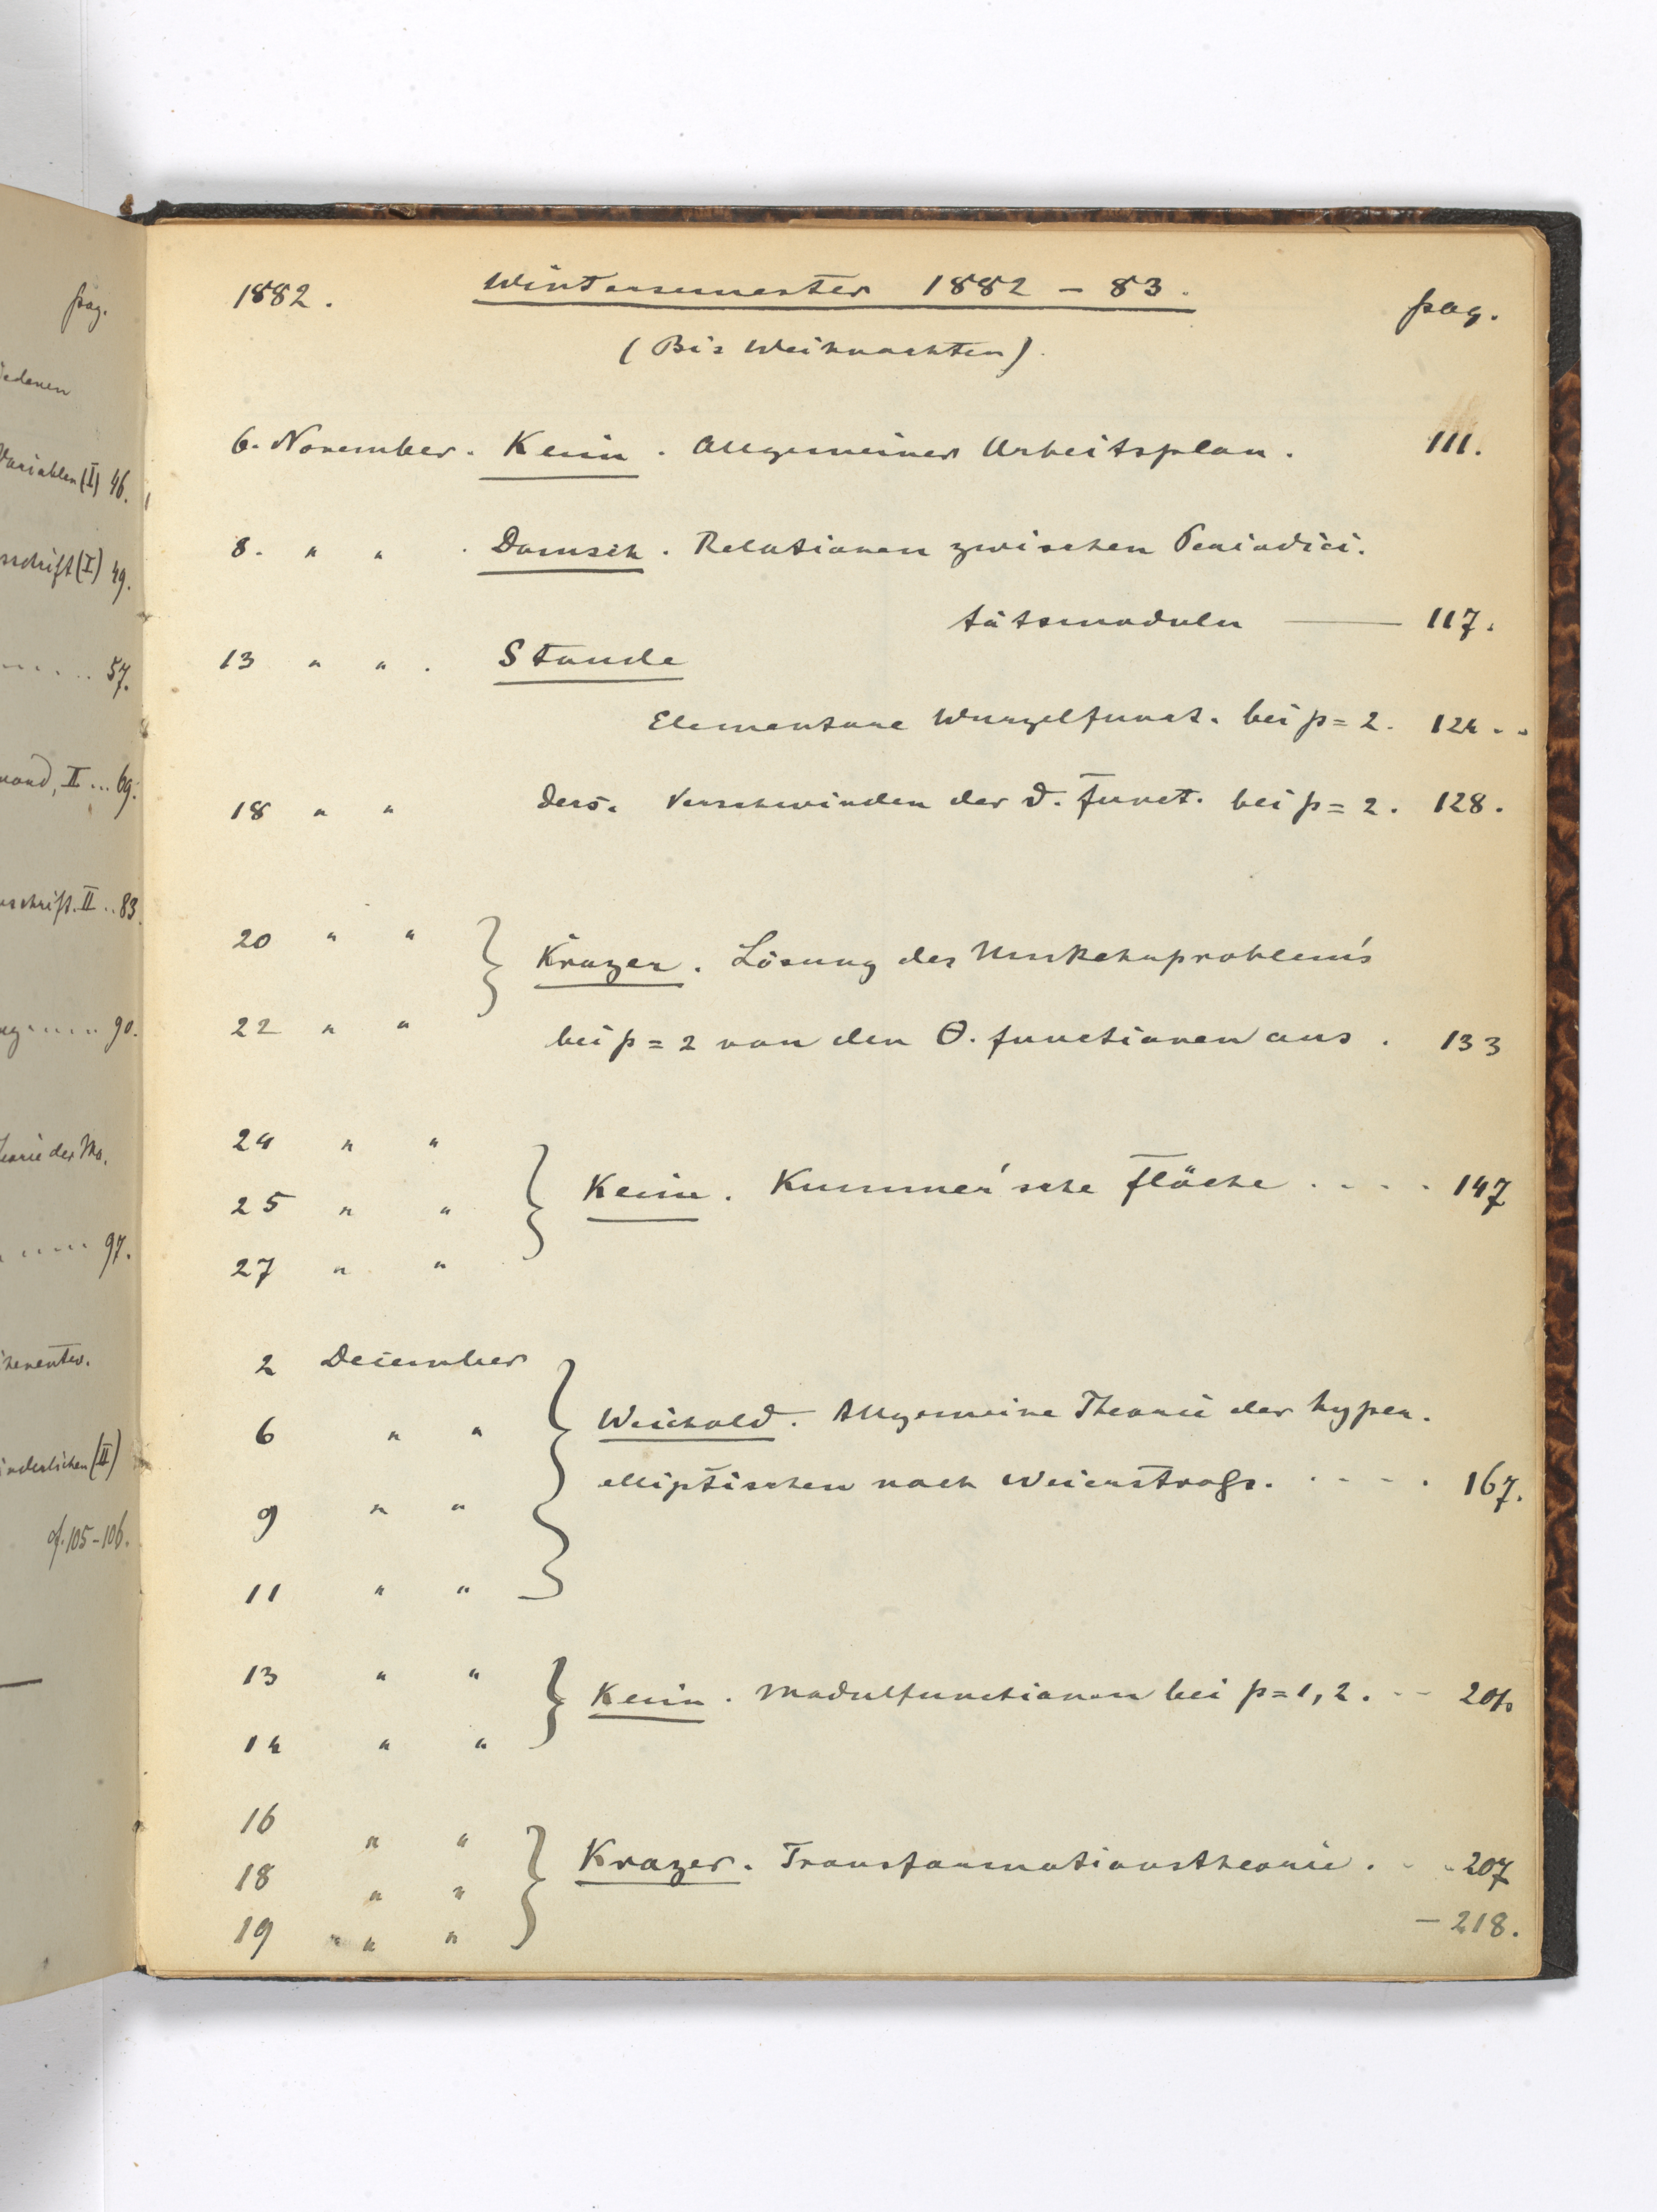 pag.
iedenen
Variablen (I) 46.
rschrift (I) 49.
..... 57.
II ... 69.
schrift. II .. 83
..... 90.
eorie der Mo.
..... 97.
(II)
cf. 105-106.
1882. Wintersemester 1882 – 83. pag.
(Bis Weihnachten).
6. November. Klein. Allgemeiner Arbeitsplan. 111.
8. " " . Domsch. Relationen zwischen Periodici.
tätsmoduln —— 117.
13 " " . Staude
Elementare Wurzelfunct. bei p = 2. 124..
18 " " Ders. Verschwinden der ϑ. Funct. bei p = 2. 128.
20 " " } Krazer. Lösung des Umkehrproblem's
22 " " bei p = 2 von den Θ. functionen aus. 133
24 " "
25 " " } Klein. Kummer'sche Fläche .... 147
27 " "
2 December
6 " " } Weichold. Allgemeine Theorie der hyper.
9 " " elliptischen nach Weierstraß. .... 167.
11 " "
13 " " } Klein. Modulfunctionen bei p = 1, 2. --
14 " "
16 " "
18 " " } Krazer. Transformationstheorie. .. 207
19 " " – 218.